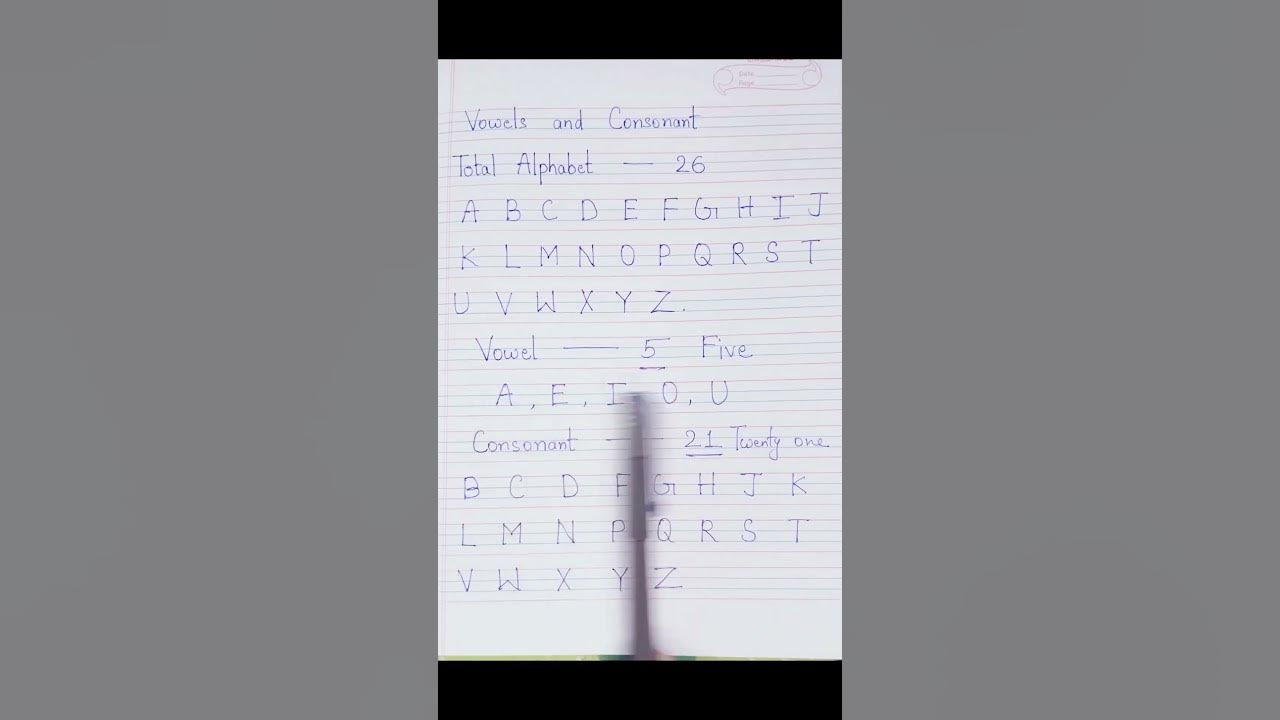 Date
Page
Vowels and Consonant
Total Alphabet — 26
A B C D E F G H I J
K L M N O P Q R S T
U V W X Y Z.
Vowel — 5 Five
A, E, I, O, U
Consonant — 21 Twenty one
B C D F G H J K
L M N P Q R S T
V W X Y Z